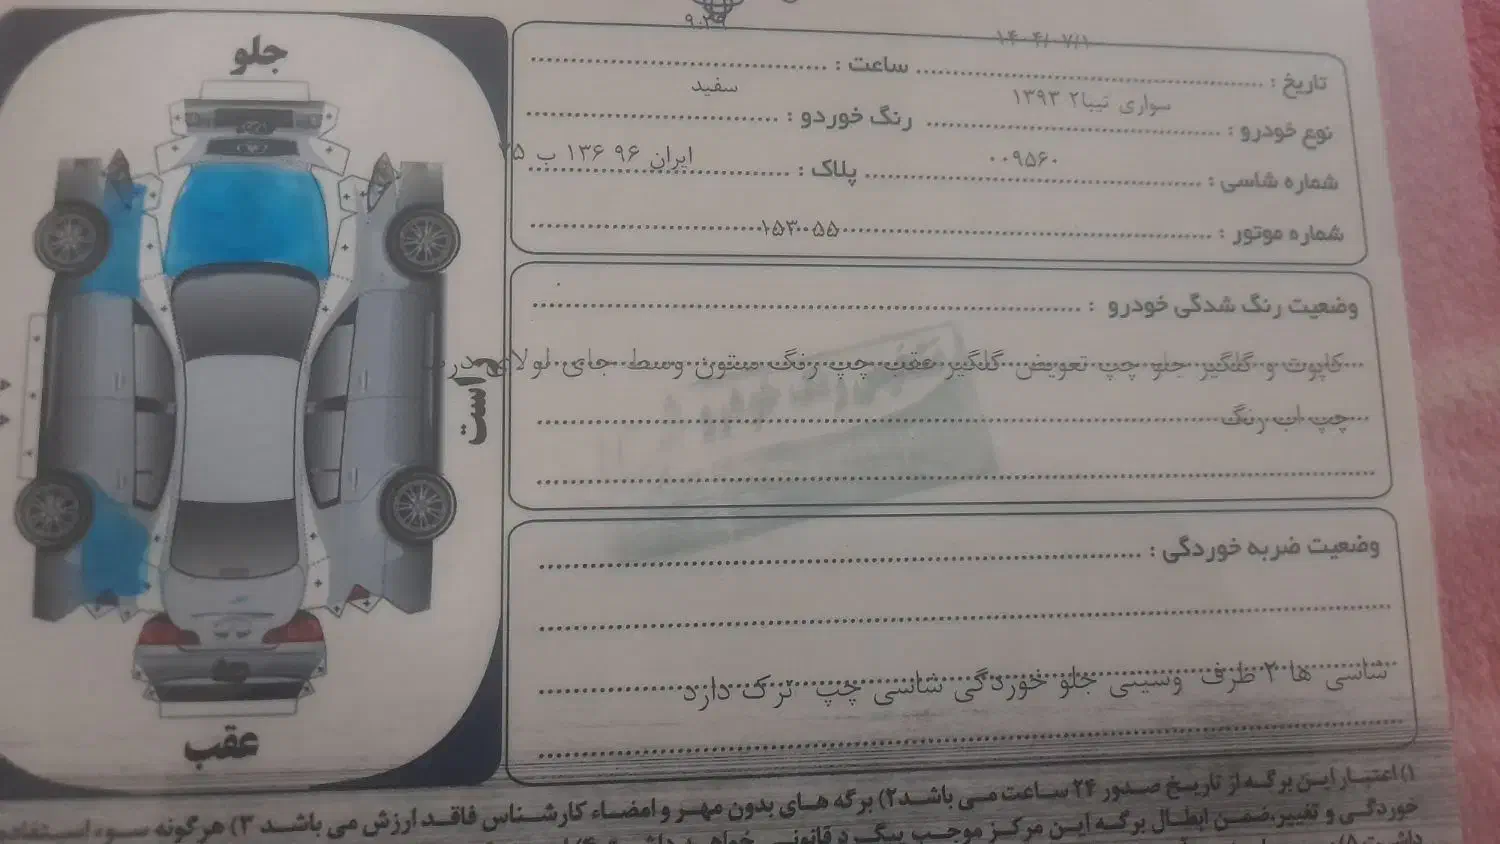 جلو
۹:۳۹
۱۴۰۴/۰۷/۱۰
تاریخ : ساعت :
سواری تیبا۲ ۱۳۹۳ سفید
نوع خودرو : رنگ خوردو :
۰۰۹۵۶۰ ایران ۹۶ ۱۳۶ ب ۷۵
شماره شاسی : پلاک :
شماره موتور : ۱۵۳۰۰۵۵
وضعیت رنگ شدگی خودرو :
کاپوت و گلگیر جلو چپ تعویض گلگیر عقب چپ رنگ ستون وسط جای لولای درب
چپ اب رنگ
راست
وضعیت ضربه خوردگی :
شاسی ها ۲ طرف وسینی جلو خوردگی شاسی چپ ترک دارد
عقب
۱) اعتبار این برگه از تاریخ صدور ۲۴ ساعت می باشد ۲) برگه های بدون مهر و امضاء کارشناس فاقد ارزش می باشد ۳) هرگونه سوء استفاده
خوردگی و تغییر، ضمن ابطال برگه این مرکز موجب پیگرد قانونی خواهد